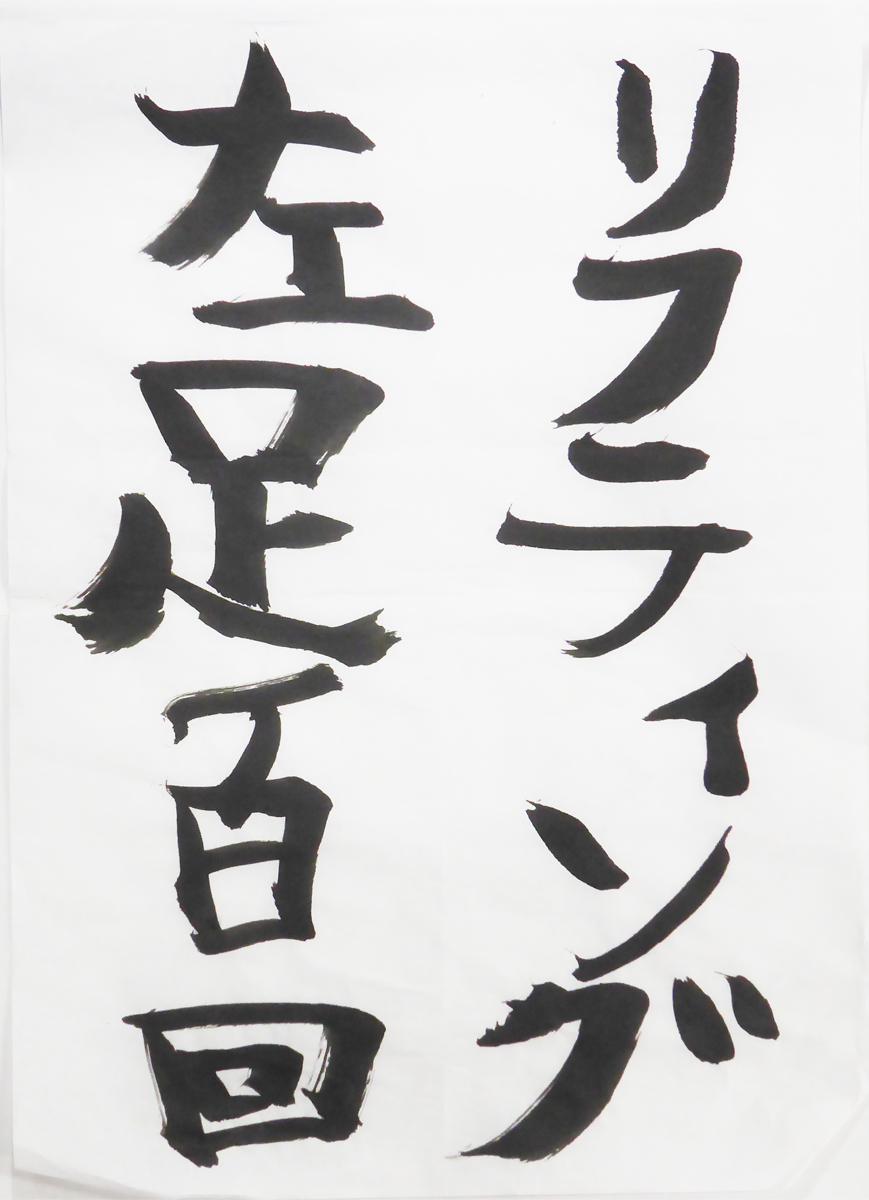 リフティング
左足百回